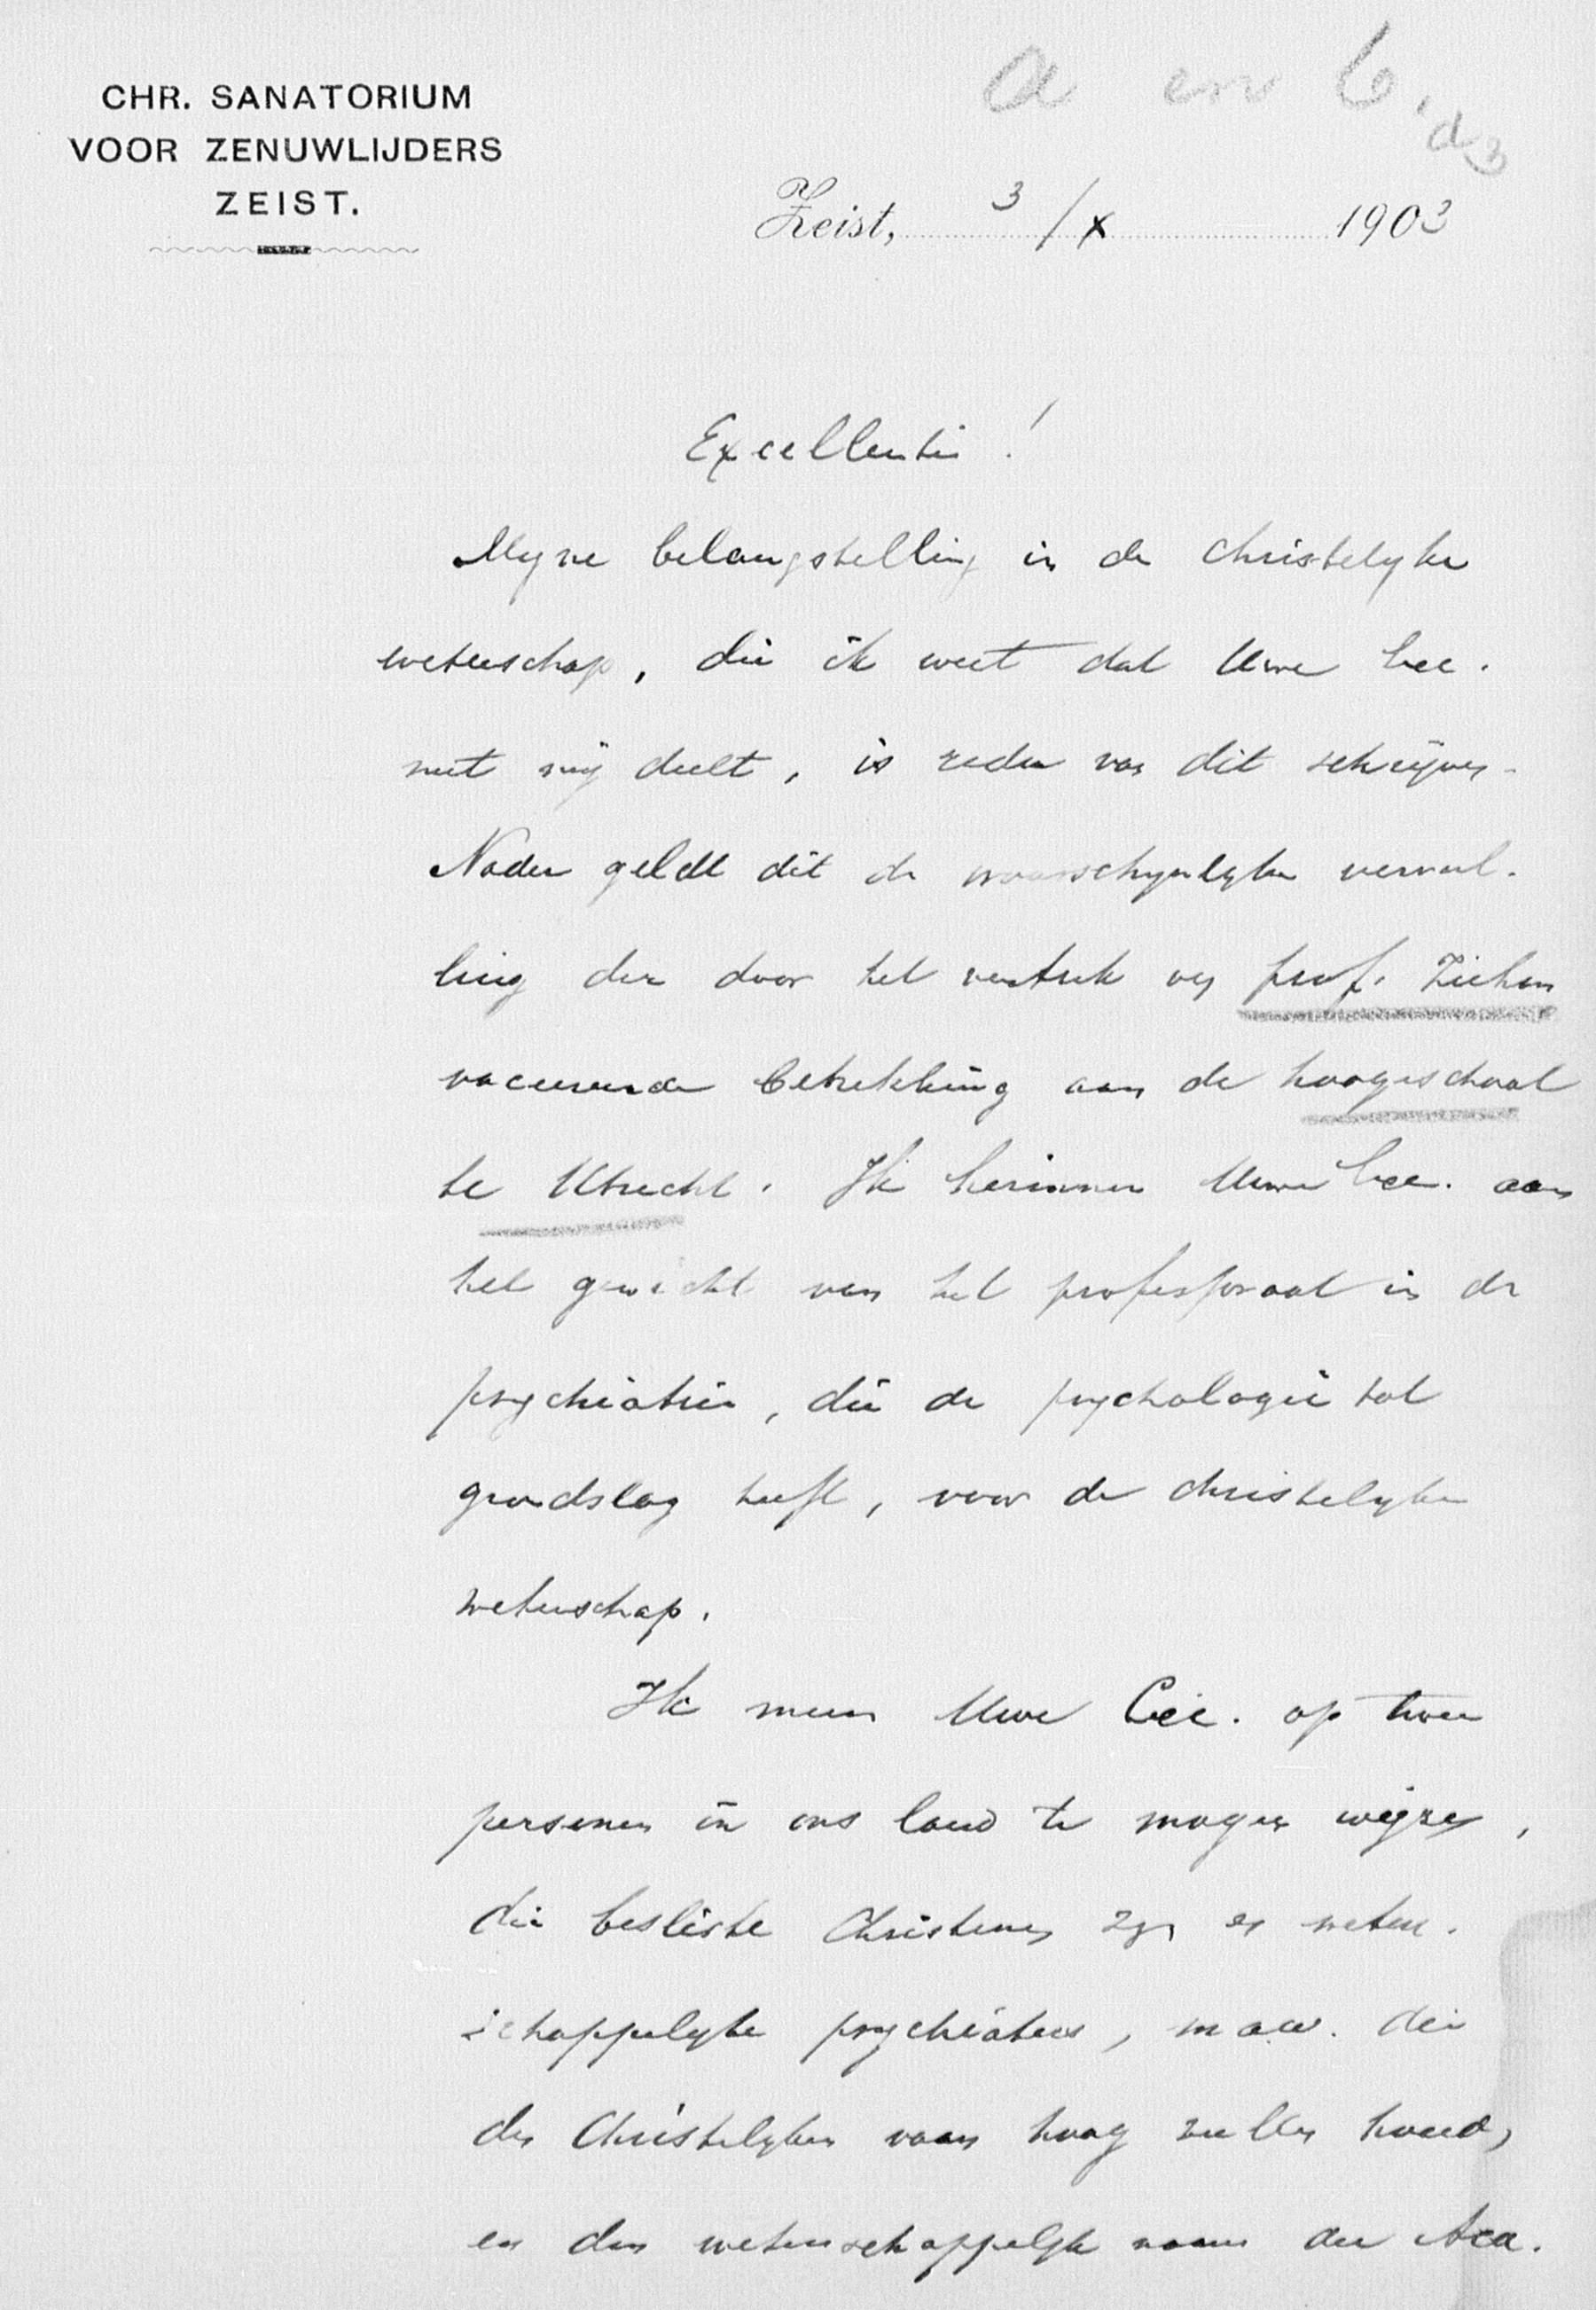 a en b.
d3
CHR. SANATORIUM
VOOR ZENUWLIJDERS
ZEIST.
Zeist, 3/X 1903
Excellentie!
Myne belangstelling in de christelyke
wetenschap, die ik weet dat Uwe Exc.
met mij deelt, is reden van dit schrijven.
Nader geldt dit de waarschynlyke vervul-
ling der door het vertrek van prof. Ziehen
vaceerende betrekking aan de hoogeschool
te Utrecht. Ik herinner Uwe Exc. aan
het gewicht van het professoraat in de
psychiatrie, die de psychologie tot
grondslag heeft, voor de christelyke
wetenschap.
Ik meen Uwe Exc. op twee
personen in ons land te mogen wijzen,
die besliste Christenen zyn en weten-
schappelyke psychiaters, m.a.w. die
de Christelyken vaan hoog zullen houden,
en den wetenschappelyk naam der Aca-